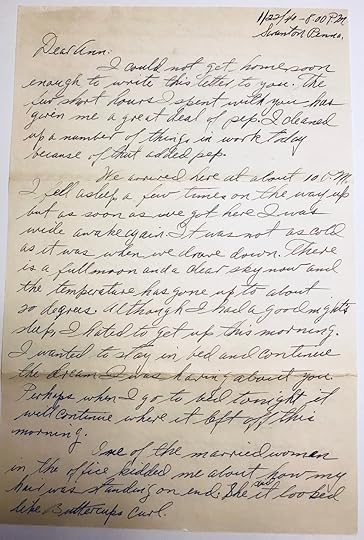 1/22/40 - 8:00 P.M.
Scranton Penna.
Dear Ann:
I could not get home soon
enough to write this letter to you. The
few short hours I spent with you has
given me a great deal of pep. I cleaned
up a number of things in work today
because of that added pep.
We arrived here at about 10. P.M.
I fell asleep a few times on the way up
but as soon as we got here I was
wide awake again. It was not as cold
as it was when we drove down. There
is a full moon and a clear sky now and
the temperature has gone up to about
20 degrees. Although I had a good night's
sleep, I hated to get up this morning.
I wanted to stay in bed and continue
the dream I was having about you.
Perhaps when I go to bed tonight it
will continue where it left off this
morning.
One of the married women
in the office kidded me about how my
hair was standing on end. She said it looked
like Buttercups curl.